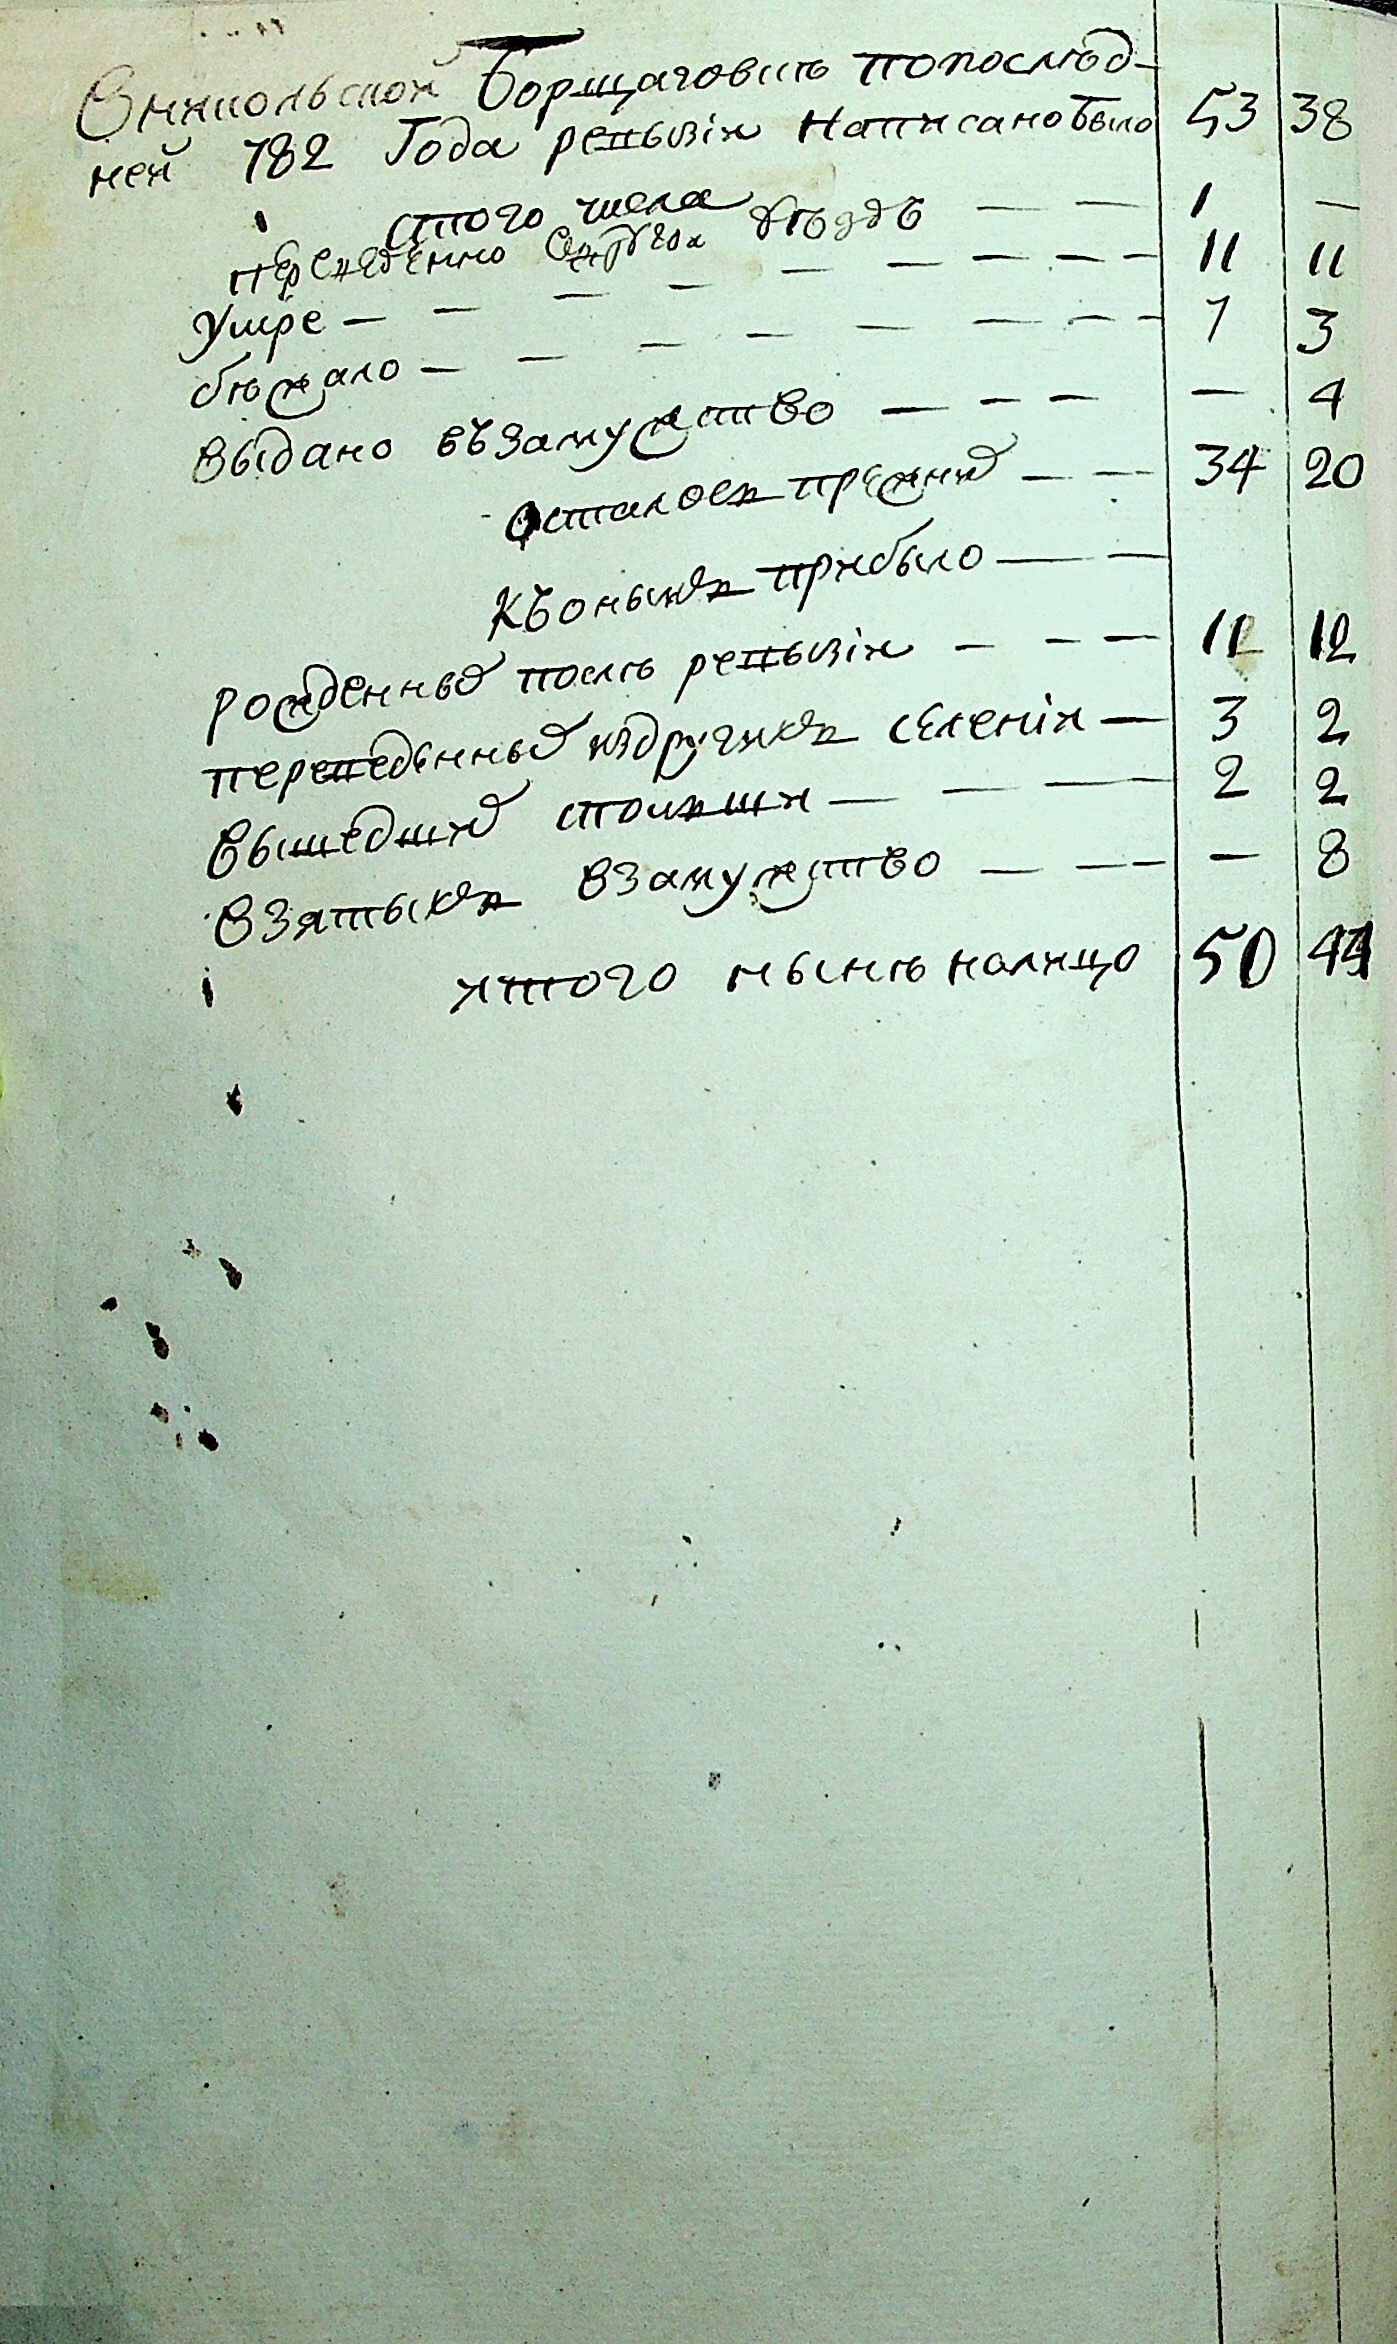 В никольской Борщаговкѣ попослѣд-
ней 782 Года ревизіи написано было 53 38
стого числа
переведенно в другой уѣздъ — — 1 —
умре — — — — — — — — 11 11
бѣжало — — — — — — — 7 3
выдано въ замужство — — — — 4
осталося прежних — — 34 20
къ оным прибыло — —
рожденных послѣ ревизіи — — — 11 12
переведенных из других селенія — 3 2
вышедших с полши — — — 2 2
взятых взамужство — — — — 8
итого нынѣ налицо 50 44